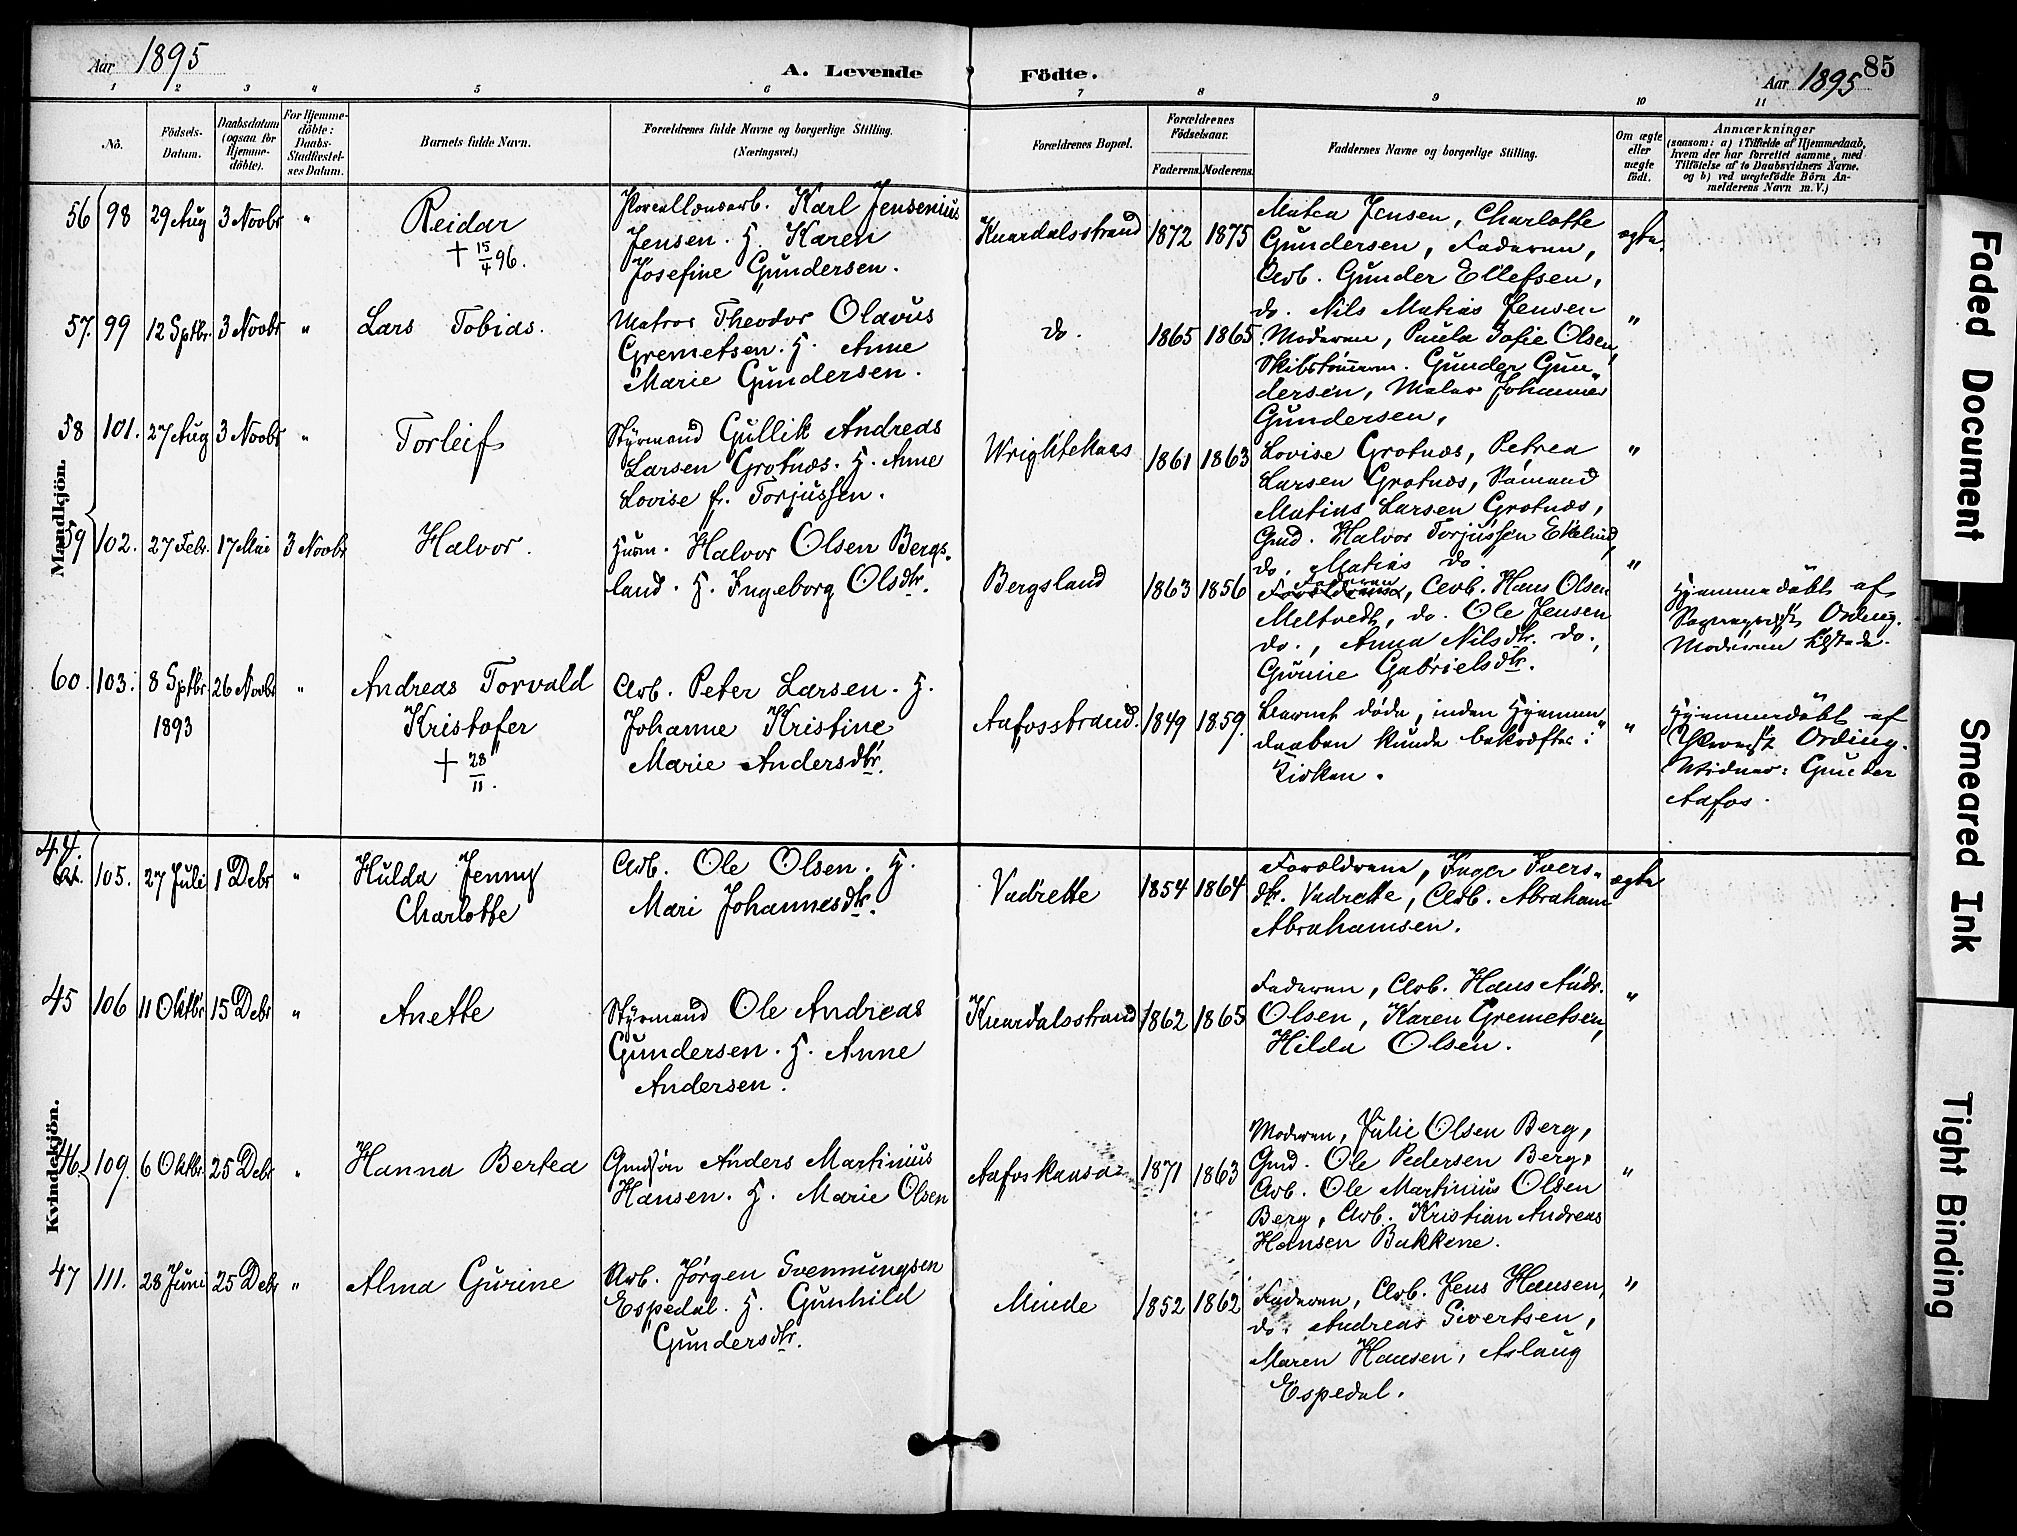 Aar 1895
A. Levende Födte.
Aar 1895
85
1 2 3 4 5 6 7 8 9 10 11
No.
Födsels-Datum.
Daabsdatum (ogsaa for Hjemme-döbte).
For Hjemme-döbte: Daabs-Stadfæstel-ses Datum.
Barnets fulde Navn.
Forældrenes fulde Navne og borgerlige Stilling. (Næringsvei.)
Forældrenes Bopæl.
Forældrenes Födselsaar.
Faderens. Moderens.
Faddernes Navne og borgerlige Stilling.
Om ægte eller uægte födt.
Anmærkninger
(saasom: a) i Tilfælde af Hjemmedaab,
hvem der har forrettet samme, med
Tilföielse af to Daabsvidners Navne.
og b) ved uegtefödte Börn An-
melderens Navn m. V.)
Mandkjön.
56 98 29 Aug 3 Novbr "
Reidar
† 15/4 96.
Porcellonsarb. Karl Jensenius
Jensen. H. Karen
Josefine Gundersen.
Knardalsstrand 1872 1875
Matea Jensen, Charlotte
Gundersen, Faderen,
Arb. Gunder Ellefsen,
do. Nils Matias Jensen
ægte.
57. 99 12 Sptbr. 3 Novbr "
Lars Tobias.
Matros Theodor Olavus
Gremetsen. H. Anne
Marie Gundersen.
do. 1865 1865
Moderen, Paula Sofie Olsen,
Skibstømerm. Gunder Gun-
dersen, Johannes
Gundersen,
"
58 101. 27 Aug 3 Novbr "
Torleif
Styrmand Gullik Andreas
Larsen Grotnæs. H. Anne
Lovise f. Torjussen.
1861 1863
Lovise Grotnæs, Petrea
Larsen Grotnæs, Sømand
Matias Larsen Grotnæs,
Gmd. Halvor Torjussen Ekelund,
do. Matias do.
"
59 102. 27 Febr. 17 Mai 3 Novbr
Halvor.
Husm. Halvor Olsen Bergs-
land. H. Ingeborg Olsdtr.
Bergsland 1863 1856
Faderen
Forældrene, Arb. Hans Olsen
Meltvedt, do. Ole Jensen
do., Anna Nilsdtr. do.,
Gurine Gabrielsdtr.
"
Hjemmedöbt af
Sogneprest Ording.
Moderen tilstede.
60. 103. 8 Sptbr 1893 26 Novbr "
Andreas Torvald
Kristofer
† 28/11.
Arb. Peter Larsen. H.
Johanne Kristine
Marie Andersdtr.
Aafosstrand. 1849 1859.
Barnet døde, inden Hjemme
daaben kunde bekræftes i
Kirken.
"
Hjemmedöbt af
Ording.
Vidner: Gunder
Aafos.
Kvindekjön.
44. 61. 105. 27 Juli 1 Debr "
Hulda Jenny
Charlotte
Arb. Ole Olsen. H.
Mari Johannesdtr.
Vadrette 1854 1864
Forældrene, Inger Ivers-
dtr. Vadrette, Arb. Abraham
Abrahamsen.
ægte
45 106 11 Oktbr. 15 Debr "
Anette
Styrmand Ole Andreas
Gundersen. H. Anne
Andersen.
Knardalsstrand 1862 1865
Faderen, Arb. Hans Andr.
Olsen, Karen Gremetsen,
Hilda Olsen.
"
46. 109. 6 Oktbr. 25 Debr "
Hanna Bertea
Gmdsøn Anders Martinius
Hansen. H. Marie Olsen
1871 1863
Moderen, Julie Olsen Berg,
Gmd. Ole Pedersen Berg,
Arb. Ole Martinius Olsen
Berg, Arb. Kristian Andreas
Hansen Bakkene.
"
47 111. 28 Juni 25 Debr "
Alma Gurine
Arb. Jørgen Svennungsen
Espedal. H. Gunhild
Gundersdtr.
Minde 1852 1862
Faderen, Arb. Jens Hansen,
do. Andreas Sivertsen,
Maren Hansen, Aslaug
Espedal.
"
Faded Document
Smeared Ink
Tight Binding